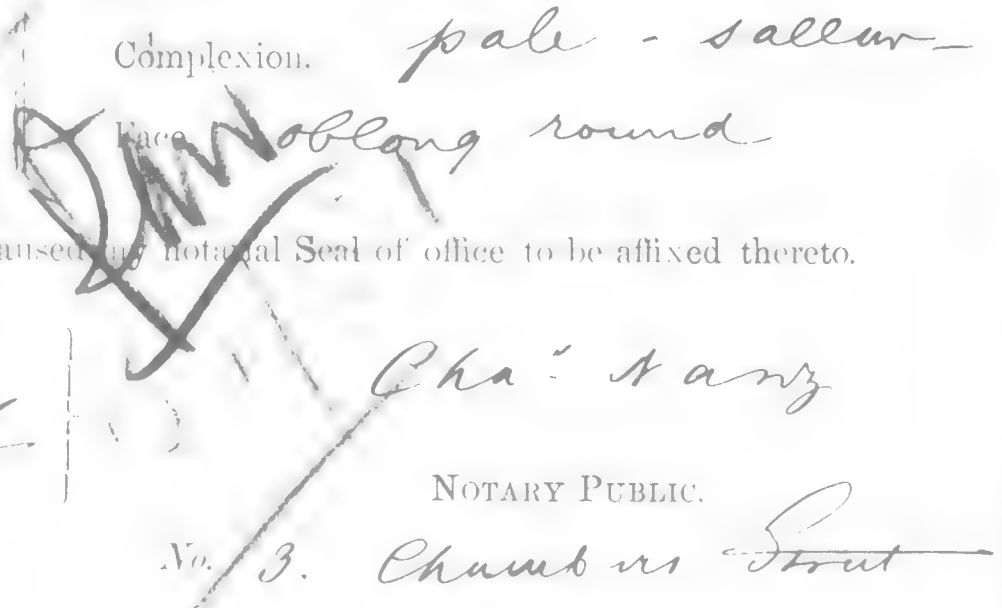 Complexion. pale - sallow -
Face oblong round
caused my notarial Seal of office to be affixed thereto.
Chas Nanz
NOTARY PUBLIC.
No. 3. Chambers Street